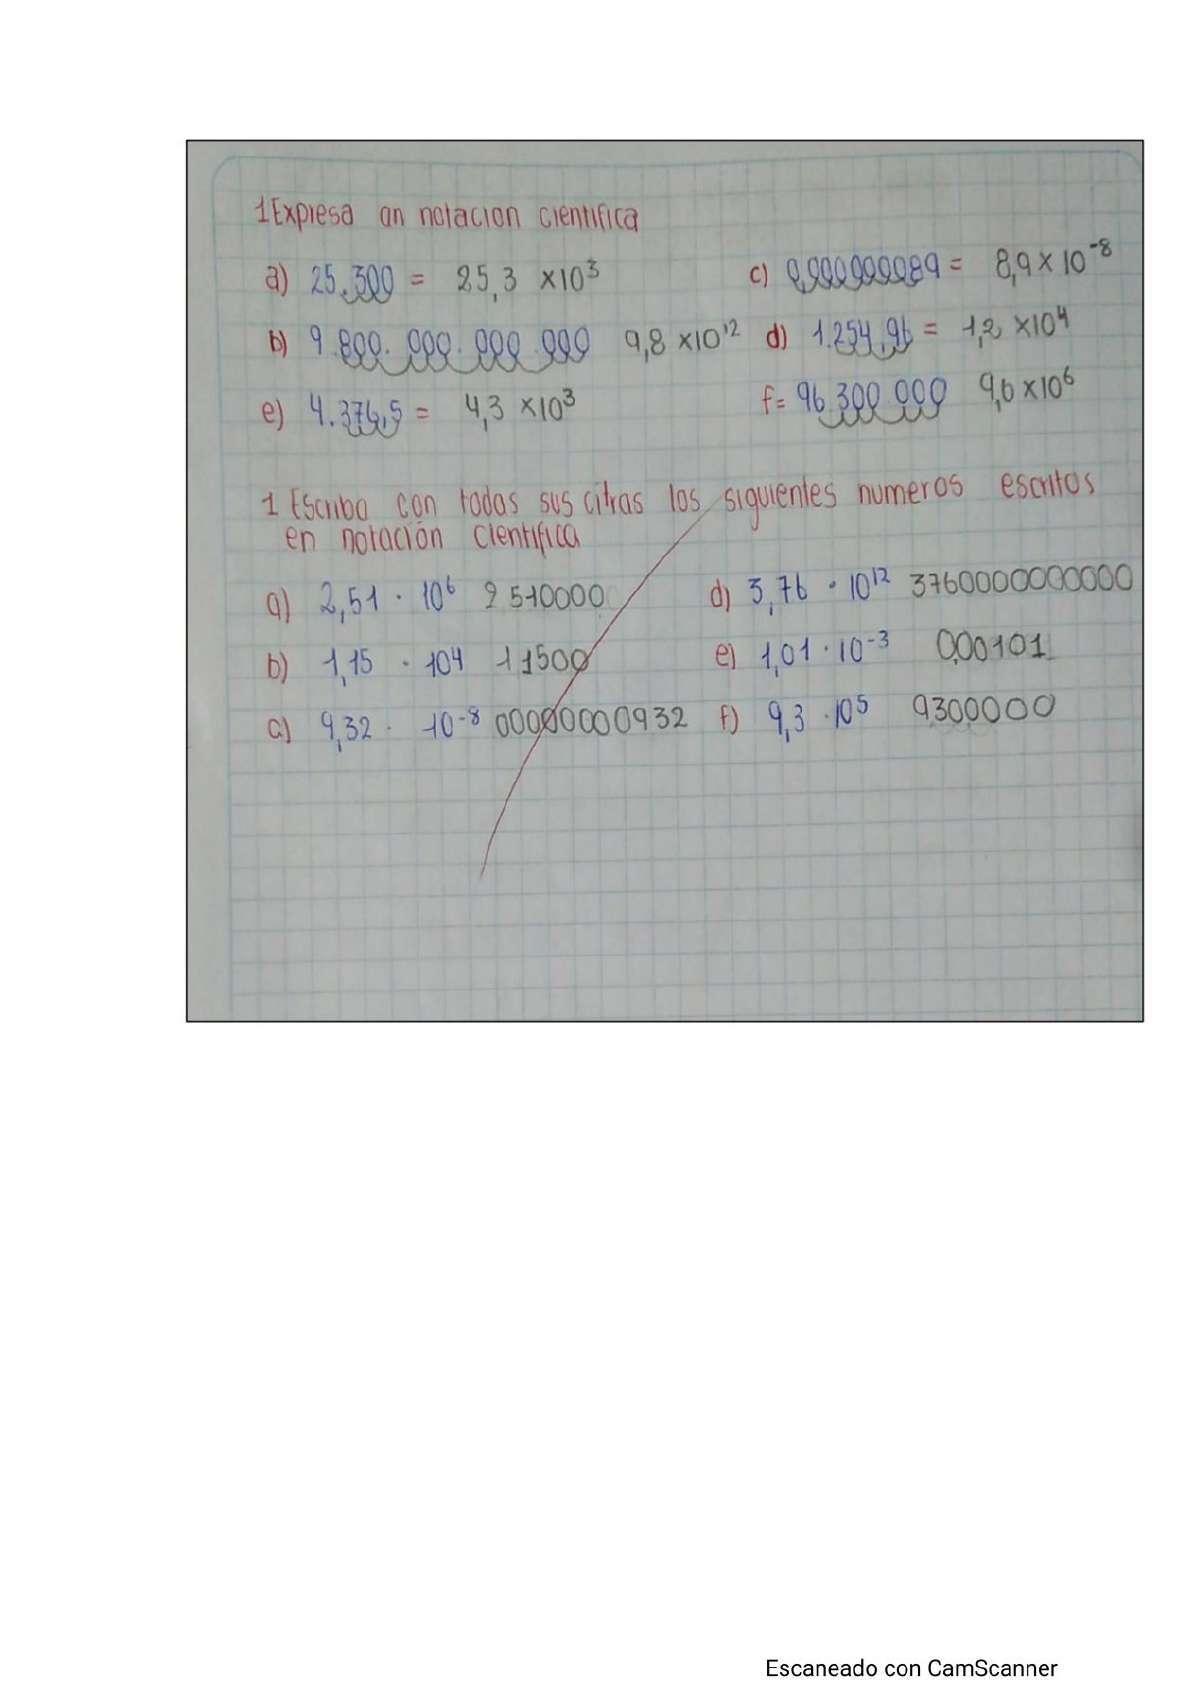 1 Expresa an notacion cientifica
a) 25.300 = 25,3 ×10³ c) 0,000000089 = 8,9 × 10⁻⁸
b) 9.800.000.000.000 9,8 ×10¹² d) 1.254,96 = 1,2 ×10⁴
e) 4.376,5 = 4,3 ×10³ f= 96 300 000 9,6 ×10⁶
1 Escriba con todas sus citras los siguientes numeros escritos
en notación cientifica
a) 2,51 · 10⁶ 2 510000 d) 3,76 · 10¹² 3760000000000
b) 1,15 · 104 11500 e) 1,01 · 10⁻³ 0,00101
a) 9,32 · 10⁻⁸ 00000000932 f) 9,3 · 10⁵ 9300000
Escaneado con CamScanner